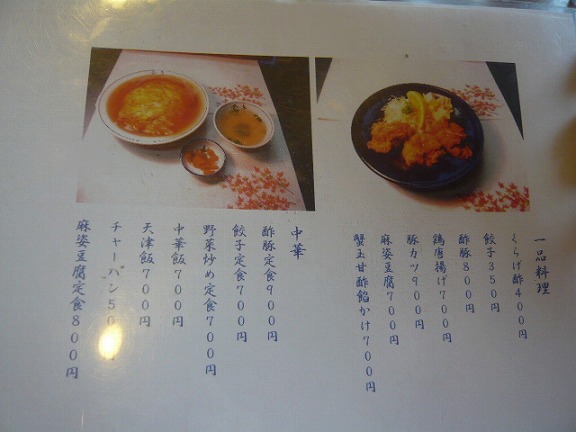 一品料理
くらげ酢400円
餃子350円
酢豚800円
鶏唐揚げ700円
豚カツ900円
麻姿豆腐700円
蟹玉甘酢餡かけ700円
中華
酢豚定食900円
餃子定食700円
野菜炒め定食700円
中華飯700円
天津飯700円
チャーハン50円
麻姿豆腐定食800円